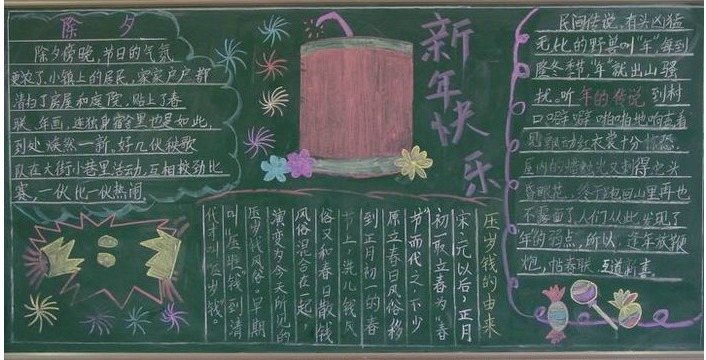 除夕
除夕傍晚，节日的气氛
更浓了，小镇上的居民，家家户户都
清扫了房屋和庭院，贴上了春
联、年画，连独身宿舍里也是如此，
到处焕然一新，好几伙秧歌
队在大街小巷里活动，互相较劲比
赛，一伙比一伙热闹
新年快乐
压岁钱的由来
宋元以后，正月
初一取立春为“春
节”而代之。不少
原立春日风俗移
到正月初一的春
节上。洗儿钱风
俗又和春日散钱
风俗混合在一起，
演变为今天所见的
压岁钱风俗。早期
叫“压 钱”到清
代才叫“压岁钱”。
民间传说，有头凶猛
无比的野兽叫“年”每到
隆冬季节，“年”就出山骚
扰。听年的传说到村
口噼噼啪啪地响
红衣裳十分
屋内的 光又刺得它头
昏眼花，终于 回山里再也
不露面了，人们从此发现了
“年”的弱点，所以，逢年放鞭
炮，帖春联、互道新喜